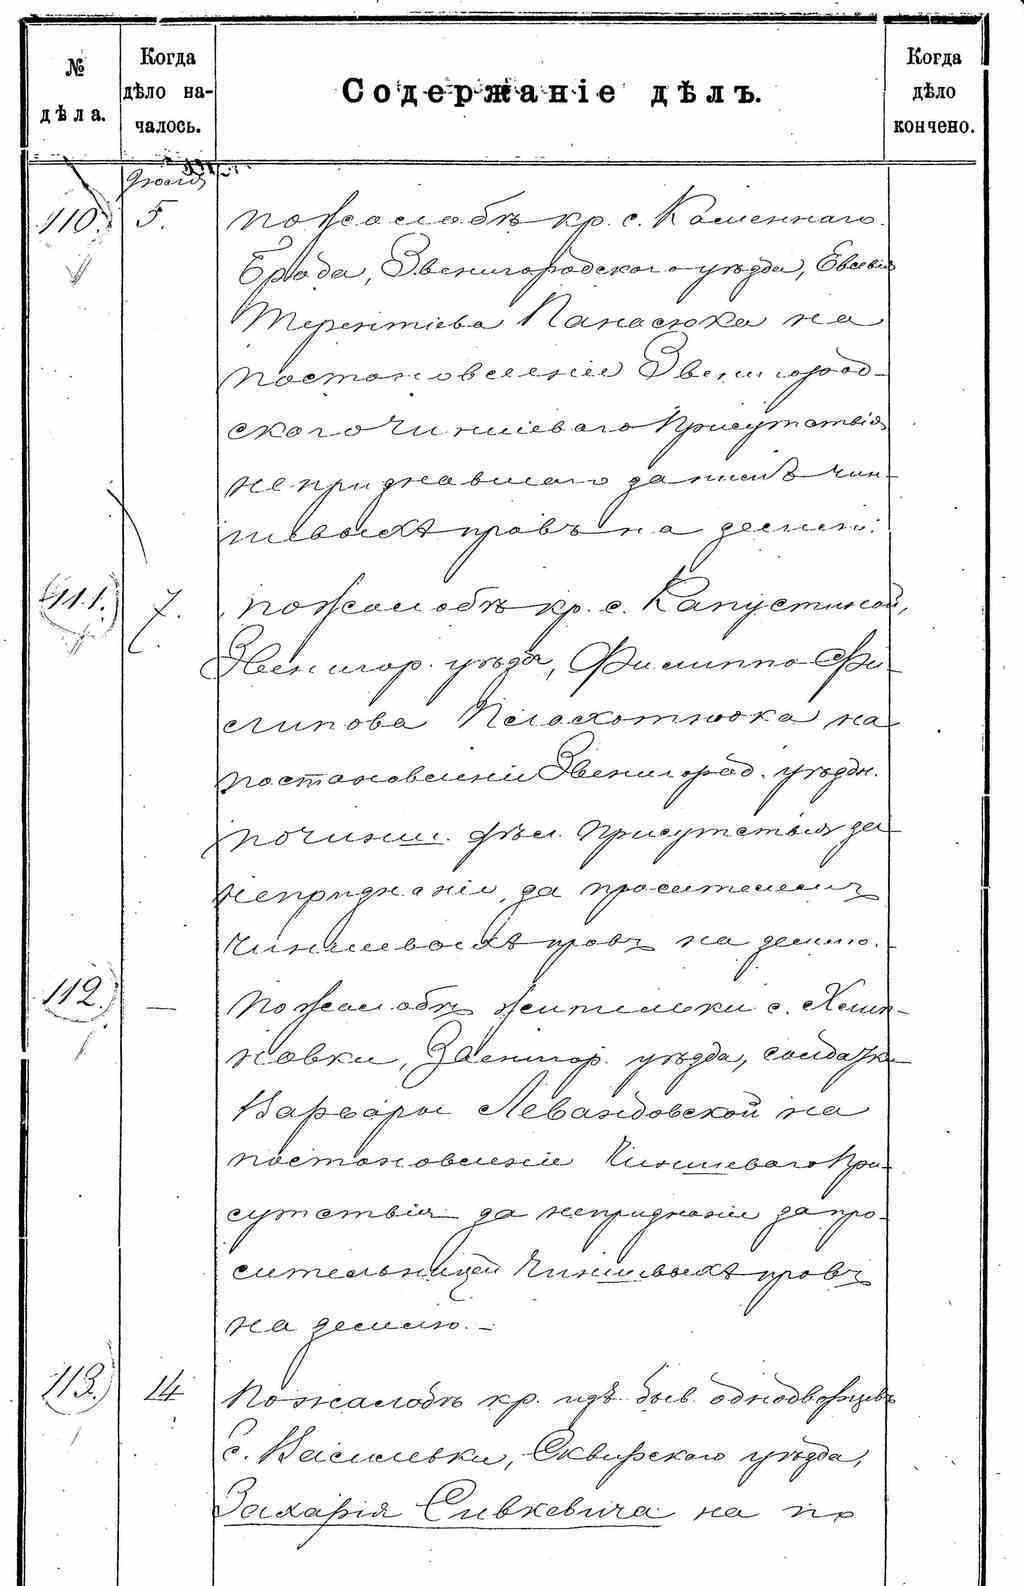 № дѣла.
Когда дѣло началось.
Содержаніе дѣлъ.
Когда дѣло кончено.
110. 5. По жалобѣ кр. с. Каменнаго
Брода, Звенигородскаго уѣзда, Евсевія
Терентіева Панасюка на
постановленіе Звенигород-
скаго Чиншеваго Присутствія
непризнавшаго за нимъ чин-
шевыхъ правъ на землю.
111. 7. По жалобѣ кр. с. Капустиной,
Звенигор. уѣзда, Филиппа Фи-
липова Плахотнюка на
постановленіе Звенигород. уѣздн.
по чинш. дѣл. Присутствія за
непризнаніе за просителемъ
Чиншевыхъ правъ на землю.
112. — По жалобѣ жительки с. Хлип-
новки, Звенигор. уѣзда, солдатки
Варвары Левандовской на
постановленіе Чиншеваго При-
сутствія за непризнаніе за про-
сительницей Чиншевыхъ правъ
на землю. —
113. 14 По жалобѣ кр. изъ быв. однодворцевъ
с. Василевки, Сквирскаго уѣзда,
Захарія Сивкевича на по